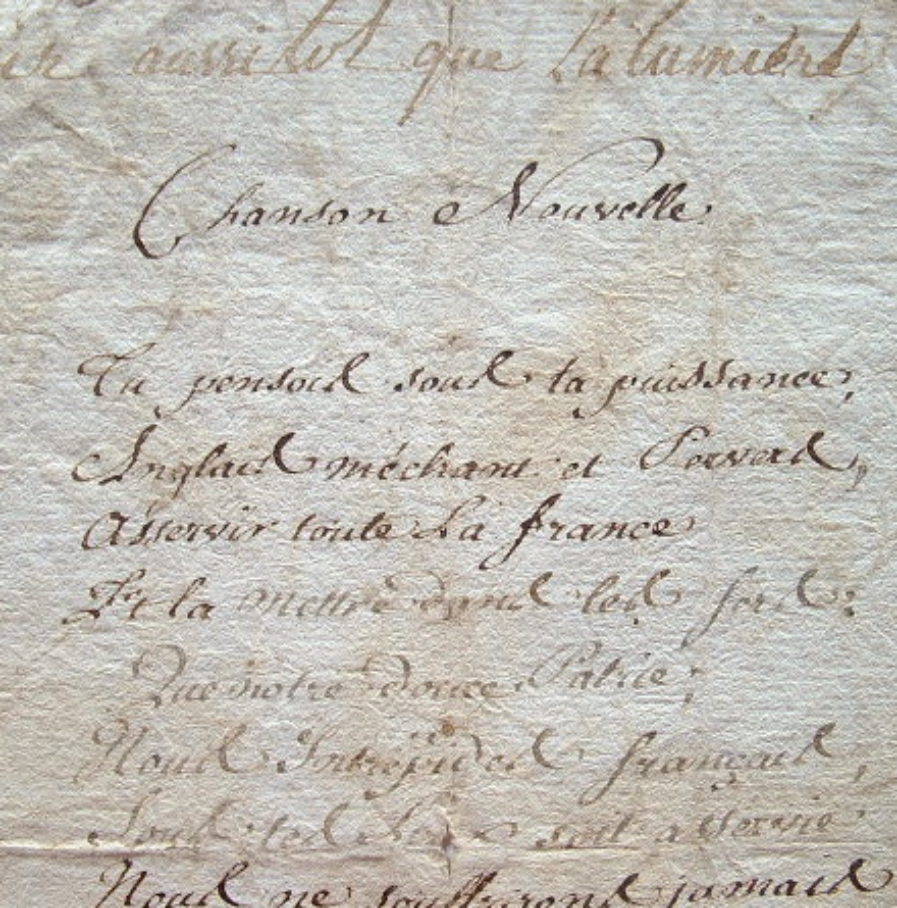 aussitot que la lumiere
Chanson Nouvelle.
Tu pensois sous ta puissance,
Anglais méchant et Pervers,
Asservir toute La france
Et la mettre dans les fers:
Que notre douce Patrie;
Nous Intrépides français,
Sous tes Loix soit asservie
Nous ne souffrirons jamais